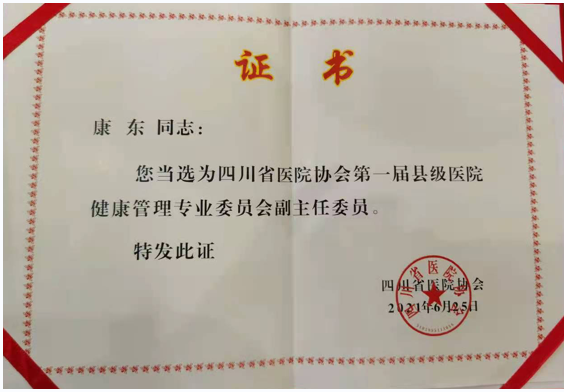 证 书
康 东 同志:
您当选为四川省医院协会第一届县级医院
健康管理专业委员会副主任委员。
特发此证
四川省医院协会
2021年6月25日
四川省医院协会